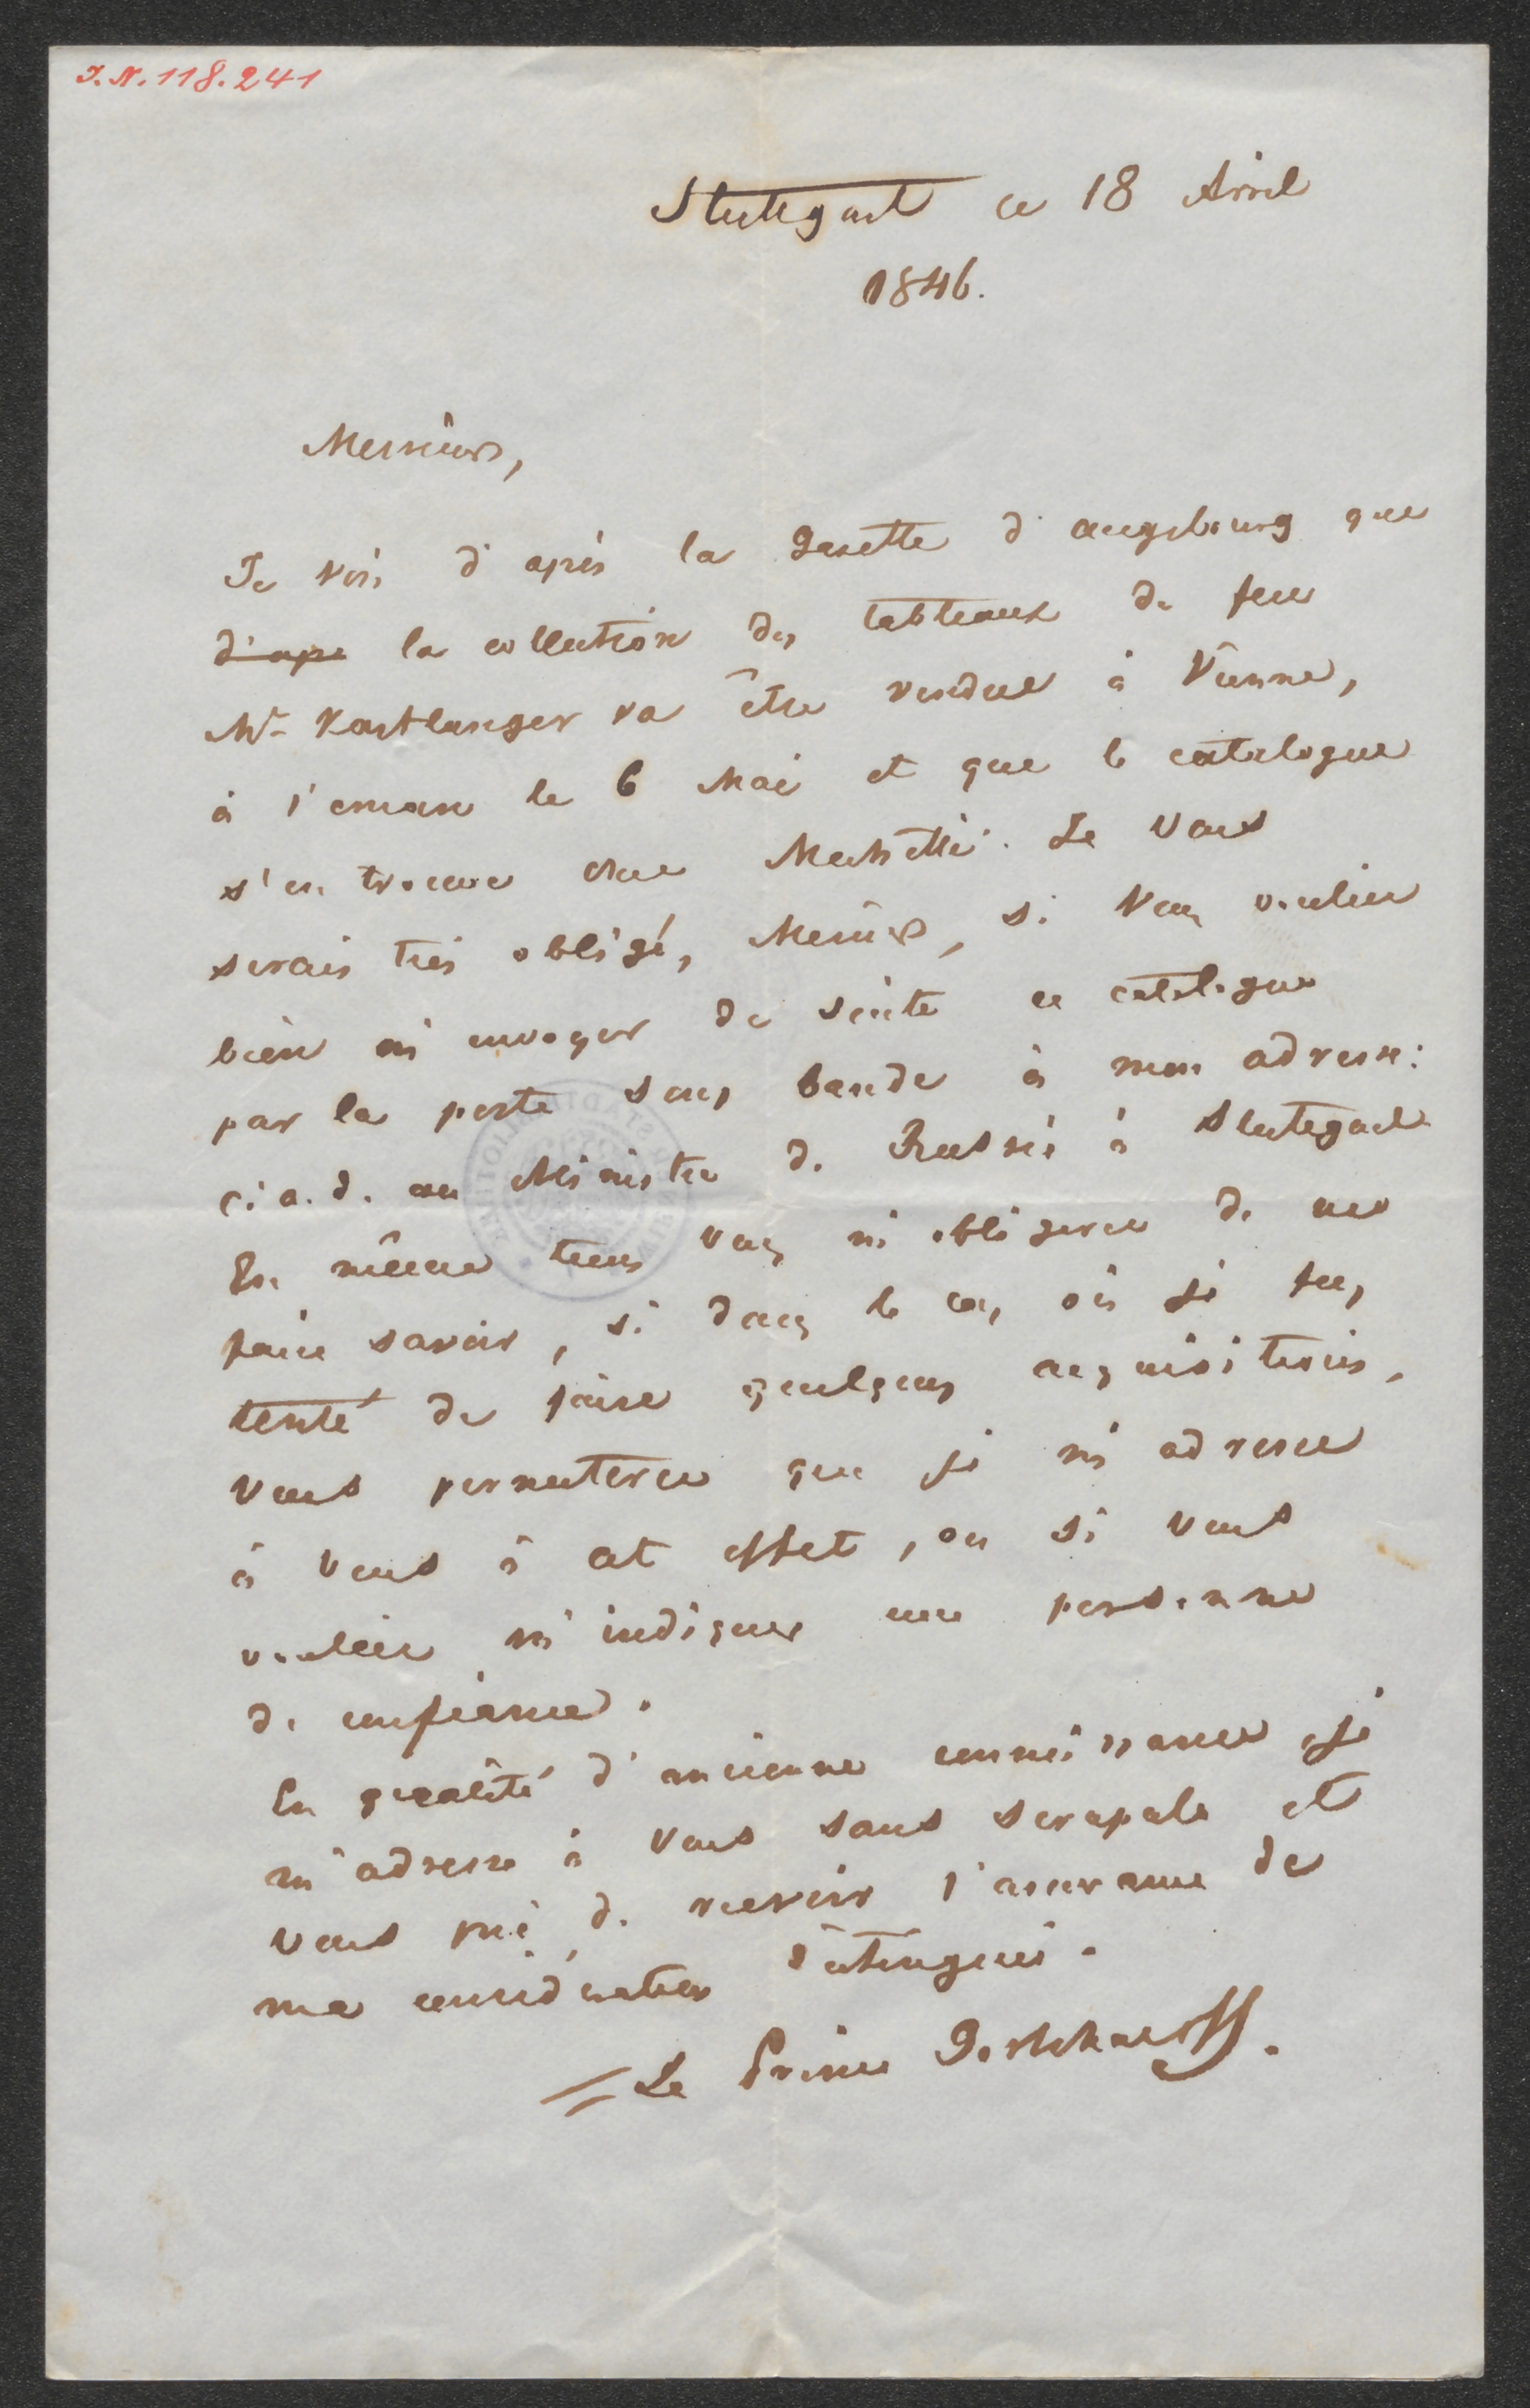 I. N. 118.241
Stuttgart ce 18 Avril
1846.
Messieurs,
Je vois d'après la Gazette d'Augsbourg que
d'apr la collection des tableaux de feu
Mr. va être vendue à Vienne,
à l'encan le 6 Mai et que le catalogue
s'en trouve chez Je vous
serais très obligé, Messieurs, si vous vouliez
bien m'envoyer de suite ce catalogue
par la poste sous bande à mon adresse:
c. a. d. au Ministre de Russie à Stutegard
En même tems vous m'obligerez de me
faire savoir, si dans le cas où je fus
tenté de faire quelques acquisitions,
vous permetterez que je m'adresse
à vous à cet effet, ou si vous
vouliez m'indiquer une personne
de confiance.
En qualité d'ancienne connaissance je
m'adresse à vous sans scrupule et
vous prie de recevoir l'assurance de
ma considération distinguée.
Le Prince Gortchacoff.